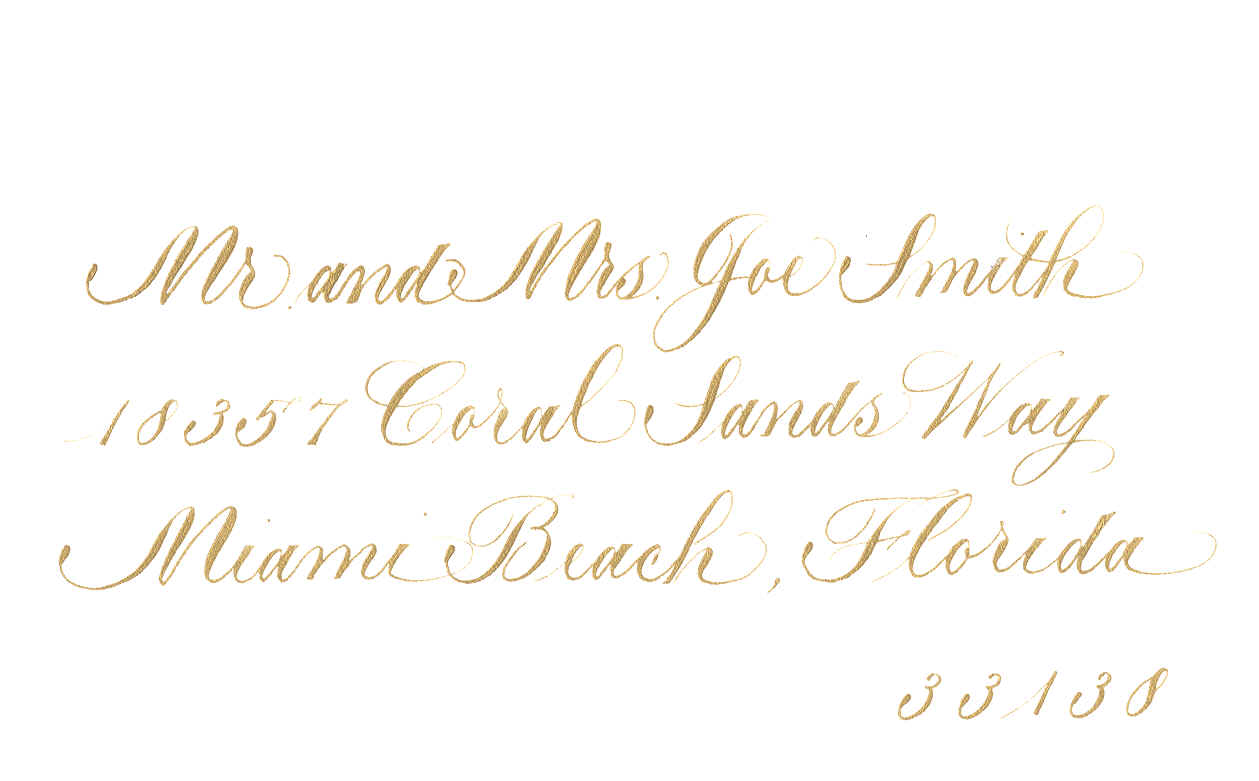 Mr. and Mrs. Joe Smith
18357 Coral Sands Way
Miami Beach, Florida
33138